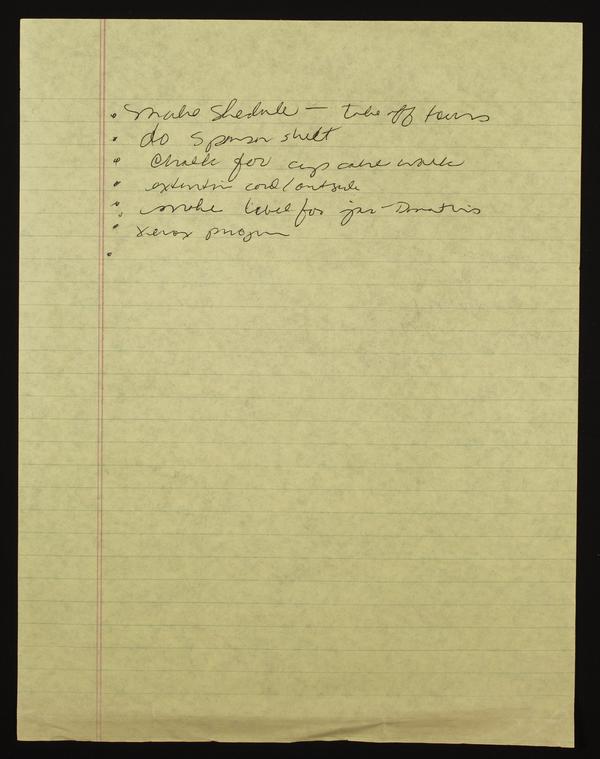 • make Shedule — take off tours
• do sponsor shelt
• chalk for cup cake walk
• extentin cord/outside
• make label for jar - Donations
• xerox program
•